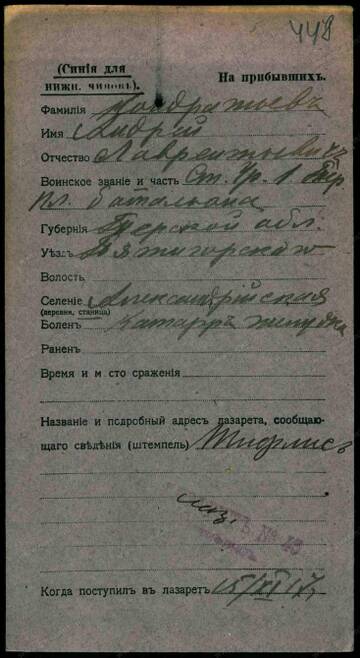 448
(Синія для
нижн. чиновъ).
На прибывшихъ.
Фамилія Кондратьевъ
Имя Андрей
Отчество Лаврентьевичъ
Воинское званіе и часть Ст. Ур. 1 Тер
Пл. баталіона
Губернія Терской обл.
Уѣздъ Пятигорскаго
Волость
Селеніе Александрійская
(деревня, станица)
Боленъ Катарръ желудка
Раненъ
Время и мѣсто сраженія
Названіе и подробный адресъ лазарета, сообщаю-
щаго свѣдѣнія (штемпель) Тифлисъ
лаз. № 18
Когда поступилъ въ лазаретъ 15/XI 17,